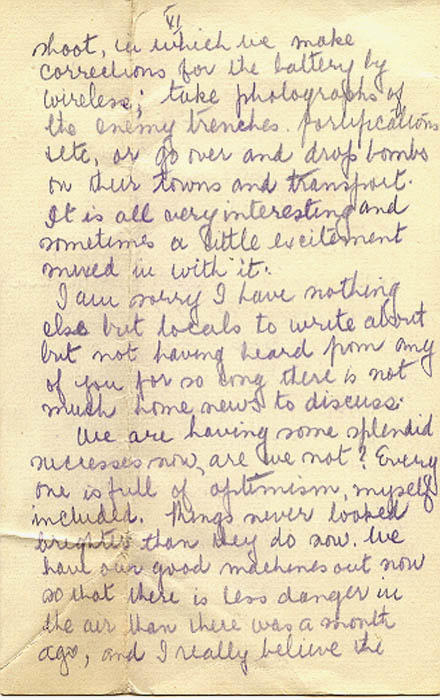 VI
shoot, in which we make
corrections for the battery by
wireless; take photographs of
the enemy trenches. fortifications
etc, or go over and drop bombs
on their towns and transport.
It is all very interesting and
sometimes a little excitement
mixed in with it.
I am sorry I have nothing
else but locals to write about
but not having heard from any
of you for so long there is not
much home news to discuss.
We are having some splendid
successes now, are we not? Every
one is full of optimism, myself
included. Things never looked
brighter than they do now. We
have our good machines out now
so that there is less danger in
the air than there was a month
ago, and I really believe the